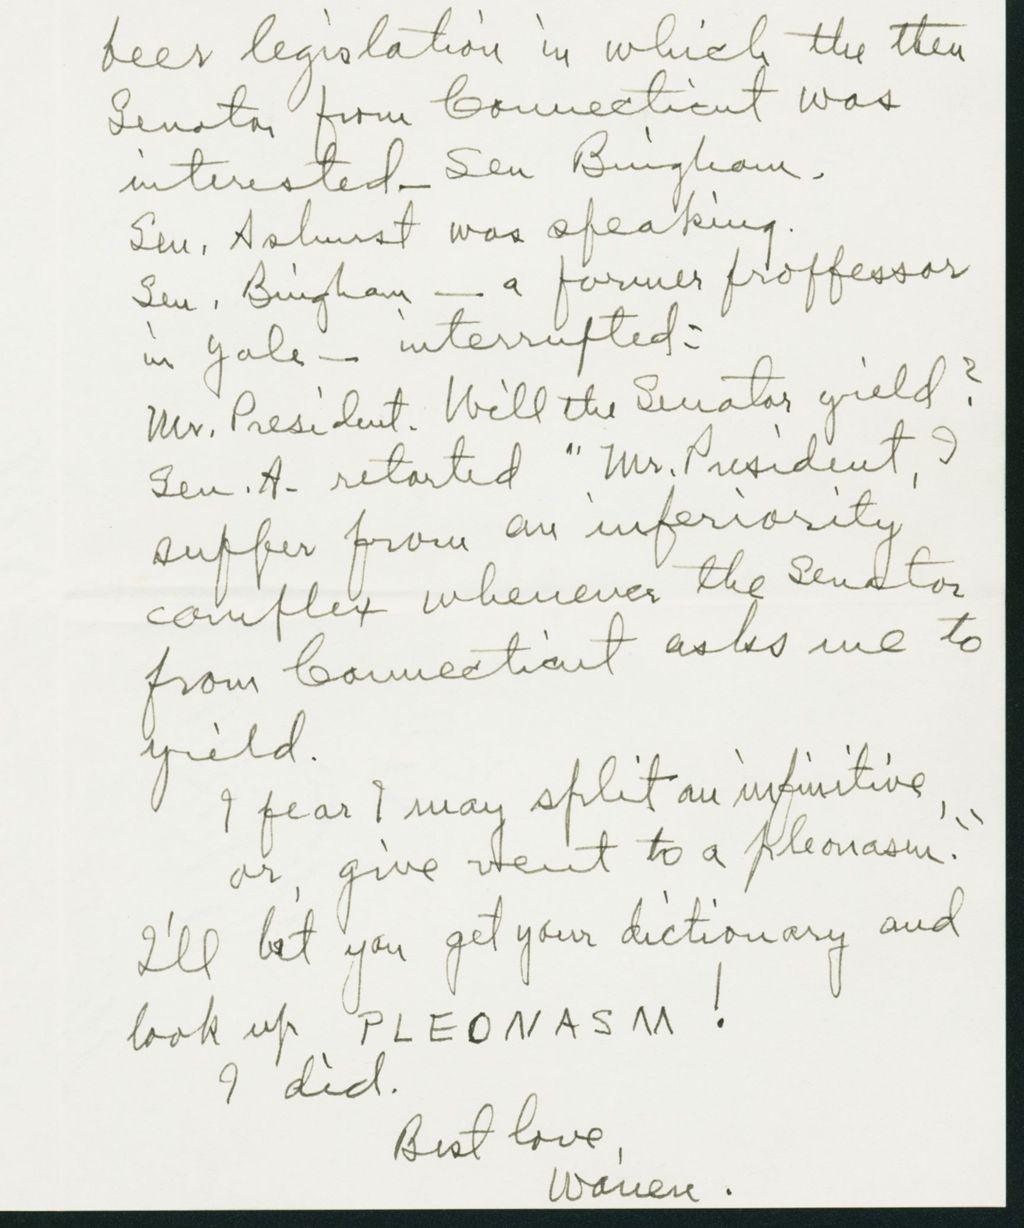 beer legislation in which the then
Senator from Connecticut was
interested — Sen Bingham.
Sen. Ashurst was speaking.
Sen. Bingham — a former proffessor
in Yale — interrupted:
Mr. President. Will the Senator yield?
Sen. A- retorted "Mr. President, I
suffer from an inferiority
complex whenever the Senator
from Connecticut asks me to
yield.
I fear I may split an infinitive,
or, give vent to a pleonasm."
I'll bet you get your dictionary and
look up PLEONASM!
I did.
Best love,
Warren.